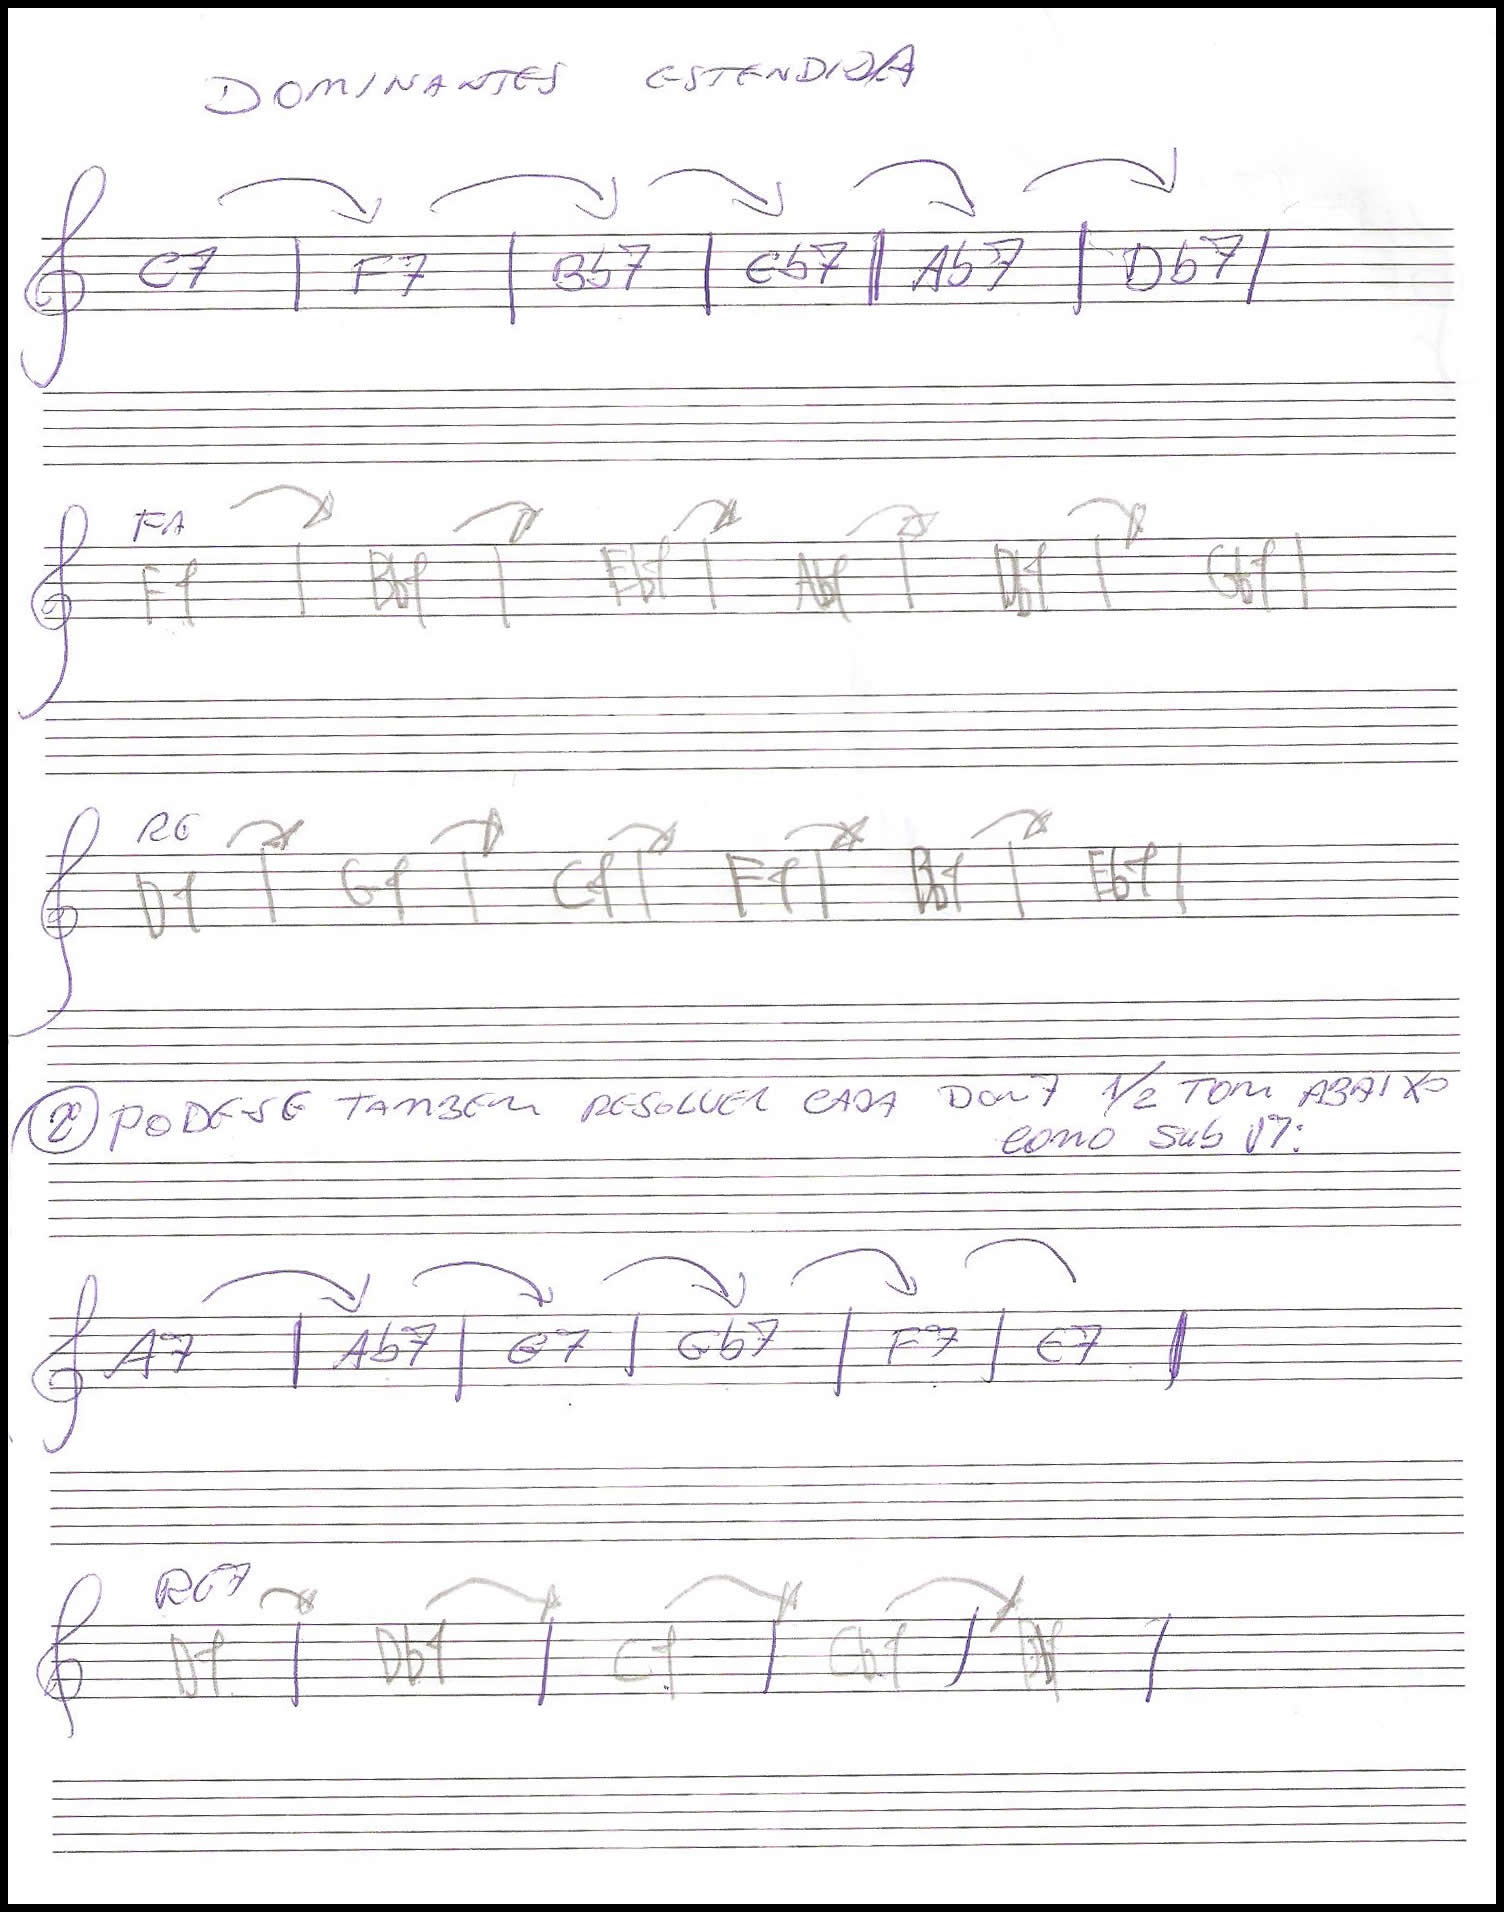 DOMINANTES ESTENDIDA
C7 | F7 | Bb7 | Eb7 || Ab7 | Db7 |
FA
F7 | Bb7 | Eb7 | Ab7 | Db7 | Gb7 |
RE
D7 | G7 | C7 | F7 | Bb7 | Eb7 |
2 PODE-SE TAMBEM RESOLVER CADA DOM7 1/2 TOM ABAIXO
COMO SUB V7:
A7 | Ab7 | G7 | Gb7 | F7 | E7 |
RE7
D7 | Db7 | C7 | Cb7 |